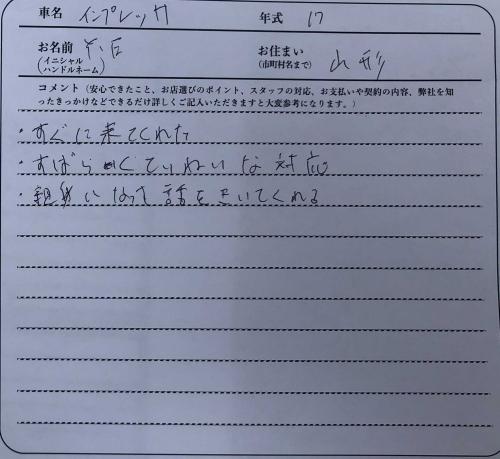 車名 インプレッサ 年式 17
お名前 (イニシャル ハンドルネーム) お住まい (市町村名まで) 山形
コメント（安心できたこと、お店選びのポイント、スタッフの対応、お支払いや契約の内容、弊社を知
ったきっかけなどできるだけ詳しくご記入いただきますと大変参考になります。）
・すぐに来てくれた
・すばらしくていねいな対応
・親身になって話をきいてくれる